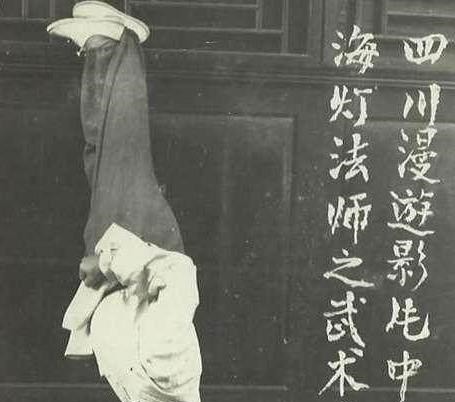 四川漫遊影片中
海灯法师之武术